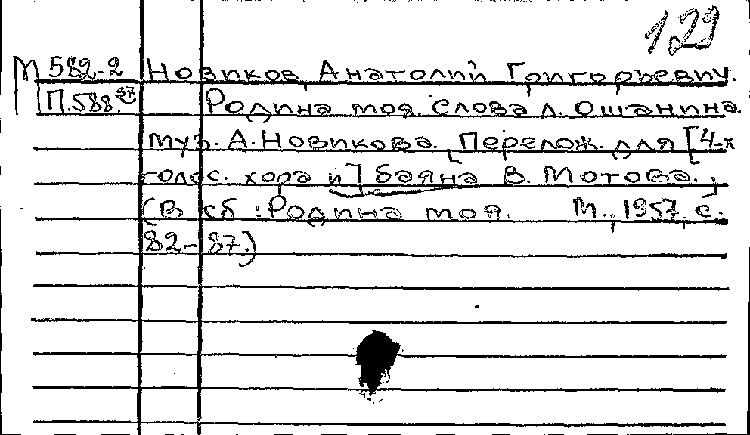 129
М 582-2 Новиков, Анатолий Григорьевич.
П.588.57 Родина моя. Слова Л. Ошанина.
Муз. А. Новикова. Перелож. для [4-х
голос. хора и] баяна В. Мотова.
(В сб.: Родина моя. М., 1957, с.
82-87.)